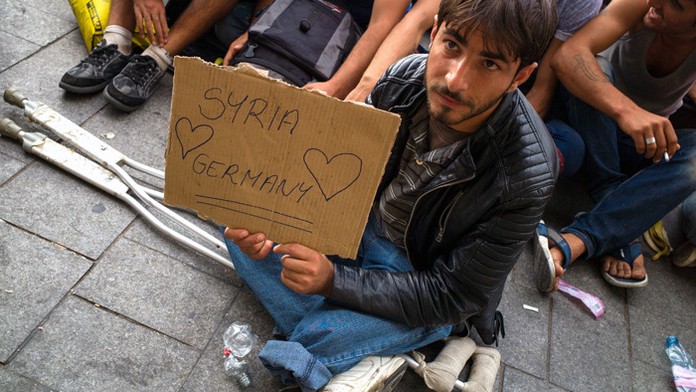 SYRIA
GERMANY